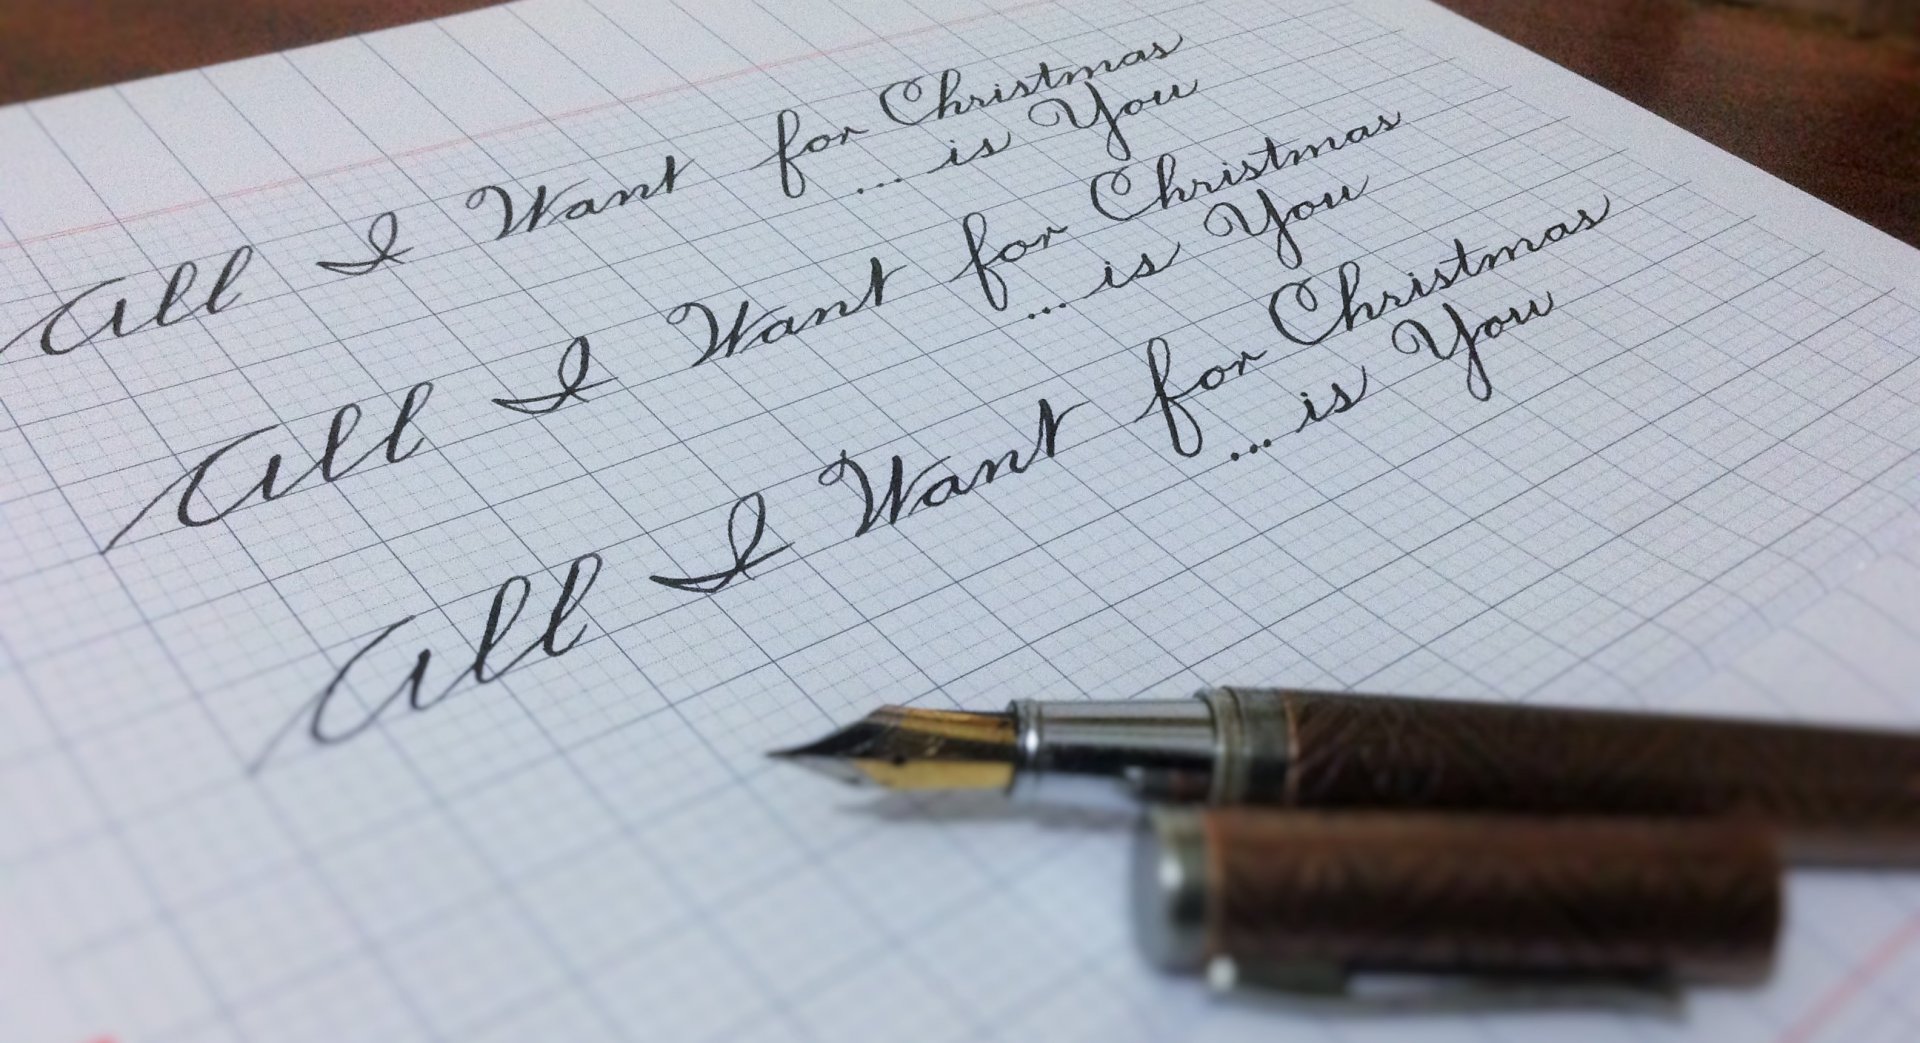 All I Want for Christmas
... is You
All I Want for Christmas
... is You
All I Want for Christmas
... is You